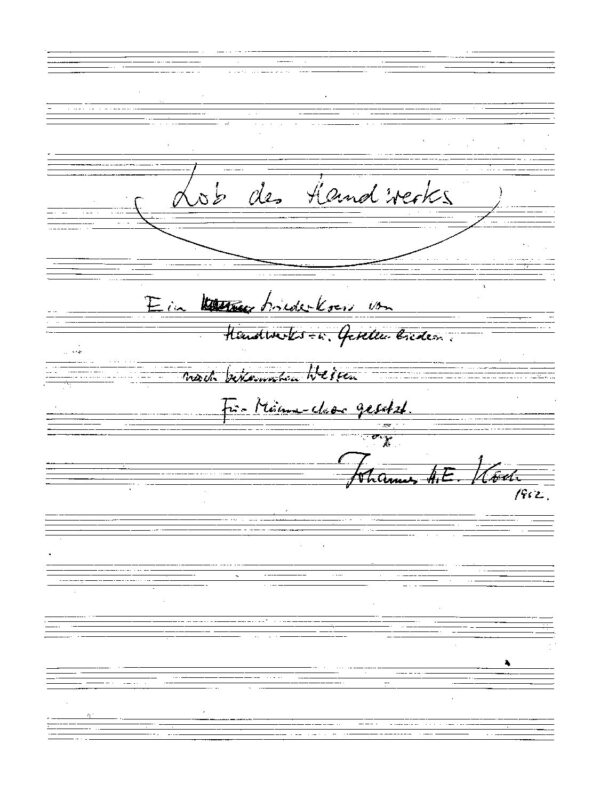 Lob des Handwerks
Ein Liederkreis von
Handwerks- u. Gesellenliedern.
nach bekannten Weisen
Für Männerchor gesetzt.
Johannes H.E. Koch
1962.